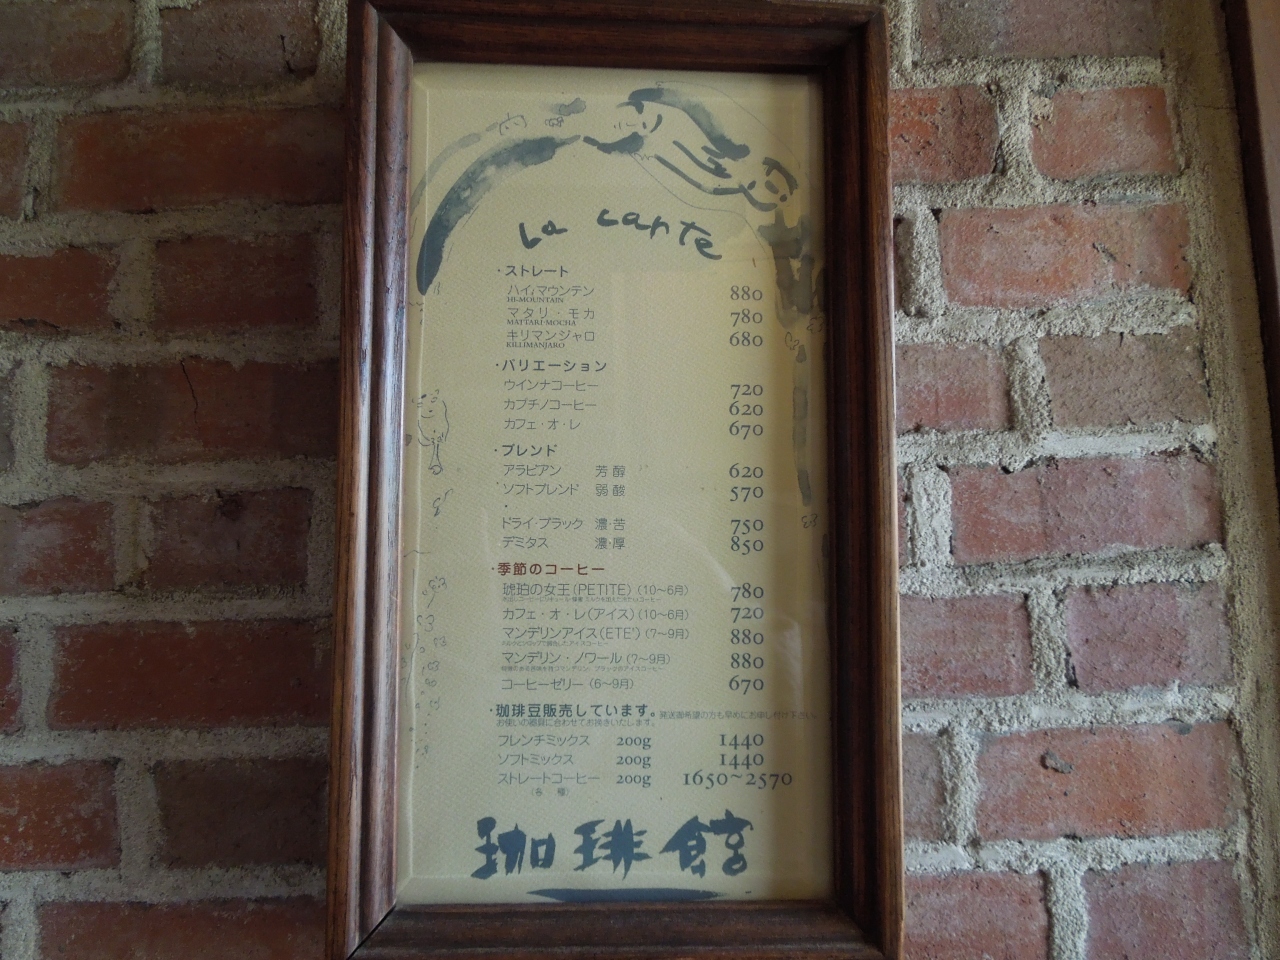 La carte
・ストレート
ハイマウンテン 880
HI-MOUNTAIN
マタリ・モカ 780
MATTARI-MOCHA
キリマンジャロ 680
KILLIMANJARO
・バリエーション
ウインナコーヒー 720
カプチノコーヒー 620
カフェ・オ・レ 670
・ブレンド
アラビアン 芳醇 620
ソフトブレンド 弱酸 570
ドライ・ブラック 濃・苦 750
デミタス 濃・厚 850
・季節のコーヒー
琥珀の女王(PETITE)(10〜6月) 780
カフェ・オ・レ(アイス)(10〜6月) 720
マンデリンアイス(ETE')(7〜9月) 880
マンデリン・ノワール(7〜9月) 880
コーヒーゼリー(6〜9月) 670
・珈琲豆販売しています。発送御希望の方も早めにお申し付け下さい。
お使いの器具に合わせてお挽きいたします。
フレンチミックス 200g 1440
ソフトミックス 200g 1440
ストレートコーヒー 200g 1650〜2570
(各種)
珈琲館